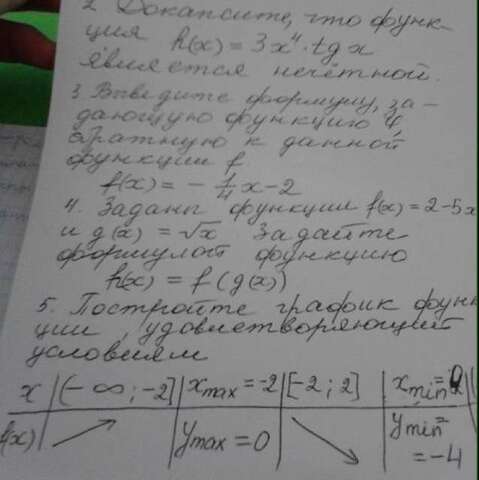 2. Докажите, что функ-
ция h(x) = 3x⁴ · tg x
является нечётной.
3. Выведите формулу, за-
дающую функцию φ,
обратную к данной
функции f
f(x) = - 1/4 x - 2
4. Заданы функции f(x) = 2 - 5x
и g(x) = √x Задайте
формулой функцию
h(x) = f(g(x))
5. Постройте график функ
ции, удовлетворяющий
условиям
x | (-∞; -2] | x max = -2 | [-2; 2] | x min =
f(x) | ↗ | y max = 0 | ↘ | y min = -4